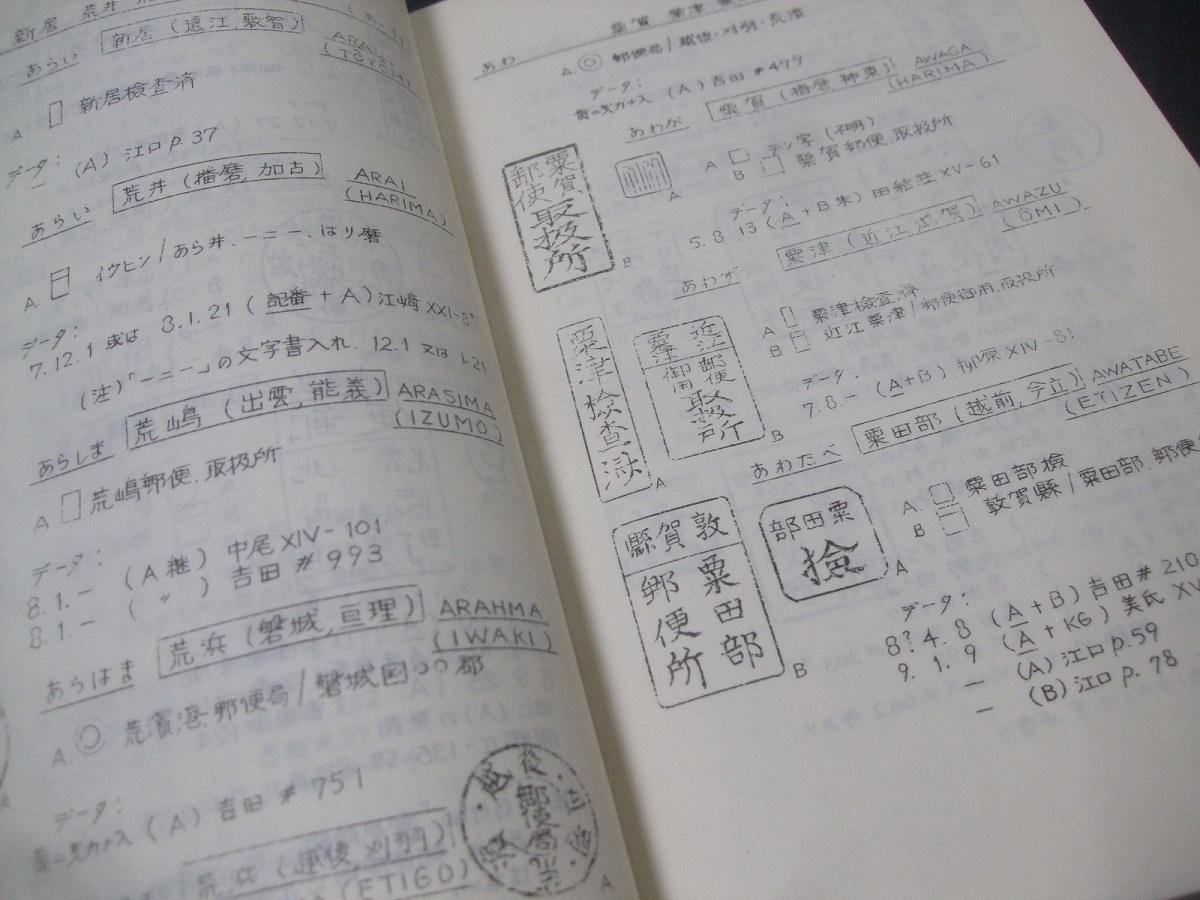 新居 荒井
あらい
新居 (遠江,敷智)
ARAI
(TOTOMI)
A 新居檢查済
データ:
— (A) 江口 p.37
あらい
荒井 (播磨,加古)
ARAI
(HARIMA)
A. イウヒン/あら井、一ニ一、はり磨
データ:
7.12.1 或は 8.1.21 (記番+A) 江崎 XXI-8
(注)「一ニ一」の文字書入れ. 12.1 又は 1.21
あらしま
荒嶋 (出雲,能義)
ARASIMA
(IZUMO)
A 荒嶋郵便取扱所
データ:
8.1.- (A 継) 中尾 XIV-101
8.1.- ( 〃 ) 吉田 #993
あらはま
荒浜 (磐城,亘理)
ARAHMA
(IWAKI)
A. 荒濱港郵便局/磐城国○○郡
データ:
(A) 吉田 #751
荒浜 (越後,刈羽)
(ETIGO)
A
粟賀 粟津
あわ
A. 郵便局/越後・刈羽・荒濱
データ:
(A) 吉田 #479
あわが
粟賀 (播磨,神東)
AWAGA
(HARIMA)
粟賀
郵便取扱所
B
A
A テン字 (不明)
B 粟賀郵便取扱所
データ:
5.8.13 (A+B朱) 田結荘 XV-61
あわず
粟津 (近江,滋賀)
AWAZU
(ŌMI)
粟津檢查済
A
近江
粟津
郵便
御用
取扱所
B
A 粟津檢查済
B 近江粟津/郵便御用取扱所
データ:
7.8.- (A+B) 柳原 XIV-81
あわたべ
粟田部 (越前,今立)
AWATABE
(ETIZEN)
敦賀縣
粟田部
郵便所
B
粟田部
檢
A
A. 粟田部檢
B 敦賀縣/粟田部郵便
データ:
8?4.8 (A+B) 吉田 #210
9.1.9 (A+KG) 美氏
— (A) 江口 p.59
— (B) 江口 p.78